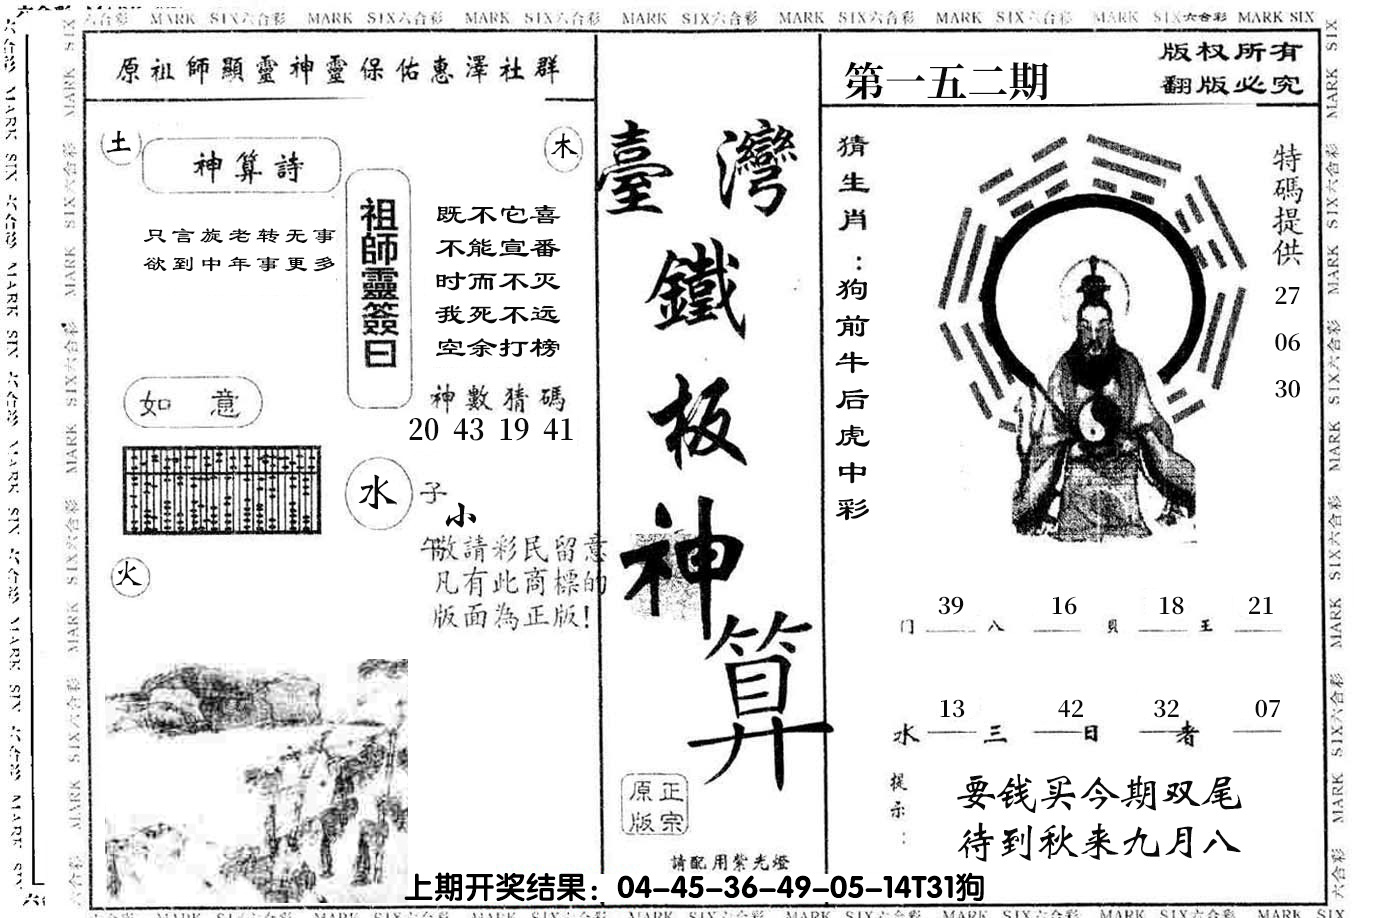 六合彩 MARK SIX六合彩 MARK SIX六合彩 MARK SIX六合彩 MARK SIX六合彩 MARK SIX六合彩 MARK SIX六合彩 MARK SIX六合彩 MARK SIX
原祖師顯靈神靈保佑惠澤社群
土
神算詩
木
只言旋老转无事
欲到中年事更多
祖師靈簽曰
既不它喜
不能宣番
时而不灭
我死不远
空余打榜
神數猜碼
20 43 19 41
如 意
水
子
小
午
敬請彩民留意
凡有此商標的
版面為正版!
火
臺灣
鐵
板
神
算
正宗
原版
請配用紫光燈
第一五二期
版权所有
翻版必究
猜生肖:狗前牛后虎中彩
特碼提供
27
06
30
39 16 18 21
门 八 貝 王
13 42 32 07
水 三 日 者
提示:
要钱买今期双尾
待到秋来九月八
上期开奖结果：04-45-36-49-05-14T31狗